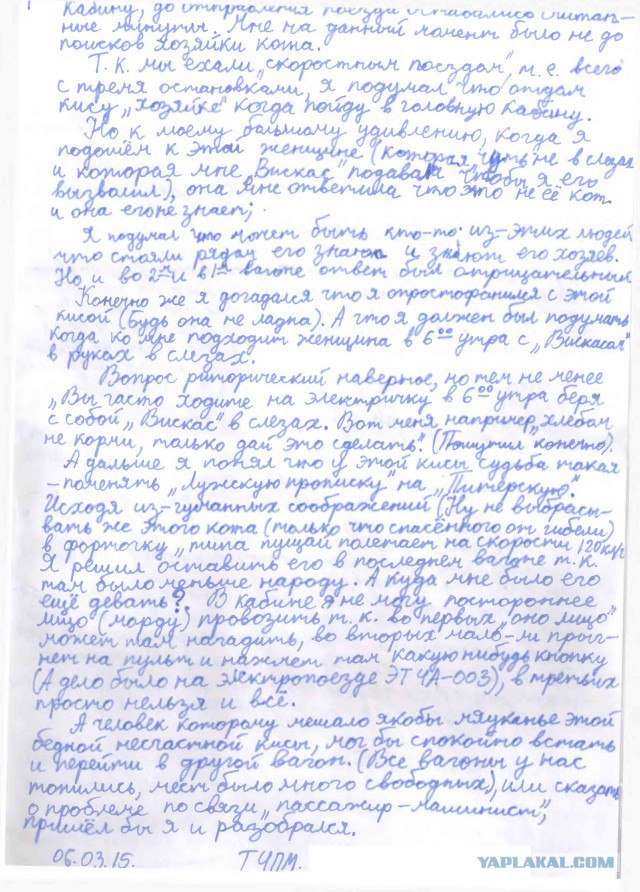 кабину, до отправления поезда оставалось считан-
ные минуты. Мне на данный момент было не до
поисков хозяйки кота.
Т.К. мы ехали „скоростным поездом", т.е. всего
с тремя остановками, я подумал что отдам
кису „хозяйке" когда пойду в головную кабину.
Но к моему большому удивлению, когда я
подошёл к этой женщине (которая чуть не в слезах
и которая мне „Вискас" подавала чтобы я его
вызволил), она мне ответила что это не её кот
и она его не знает;
Я подумал что может быть кто-то из-этих людей
что стояли рядом его знают и знают его хозяев.
Но и во 2-м и в 1-м вагоне ответ был отрицательным
Конечно же я догадался что я опростофанился с этой
кисой (будь она не ладна). А что я должен был подумать
когда ко мне подходит женщина в 6 00 утра с „Вискасом"
в руках в слезах.
Вопрос риторический наверное, но тем не менее
„Вы часто ходите на электричку в 6 00 утра беря
с собой „Вискас" в слезах. Вот меня например „хлебом
не корми, только дай это сделать". (Пошутил конечно).
А дальше я понял что у этой кисы судьба такая
- поменять „Лужскую прописку" на „Питерскую".
Исходя из-гуманных соображений (Ну не выбрасы-
вать же этого кота (только что спасённого от гибели)
в форточку „типа пущай полетает на скорости 120км/ч
Я решил оставить его в последнем вагоне т.к.
там было меньше народу. А куда мне было его
ещё девать? В кабине я не могу постороннее
лицо (морду) провозить т.к. во первых „оно лицо"
может там нагадить, во вторых мало-ли прыг-
нет на пульт и нажмёт там какую нибудь кнопку
(А дело было на электропоезде ЭТ4А-003), в третьих
просто нельзя и всё.
А человек которому мешало якобы мяуканье этой
бедной несчастной кисы, мог бы спокойно встать
и перейти в другой вагон. (Все вагоны у нас
топились, мест было много свободных), или сказать
о проблеме по связи „пассажир-машинист",
пришёл бы я и разобрался.
06.03.15. ТЧПМ.
YAPLAKAL.COM